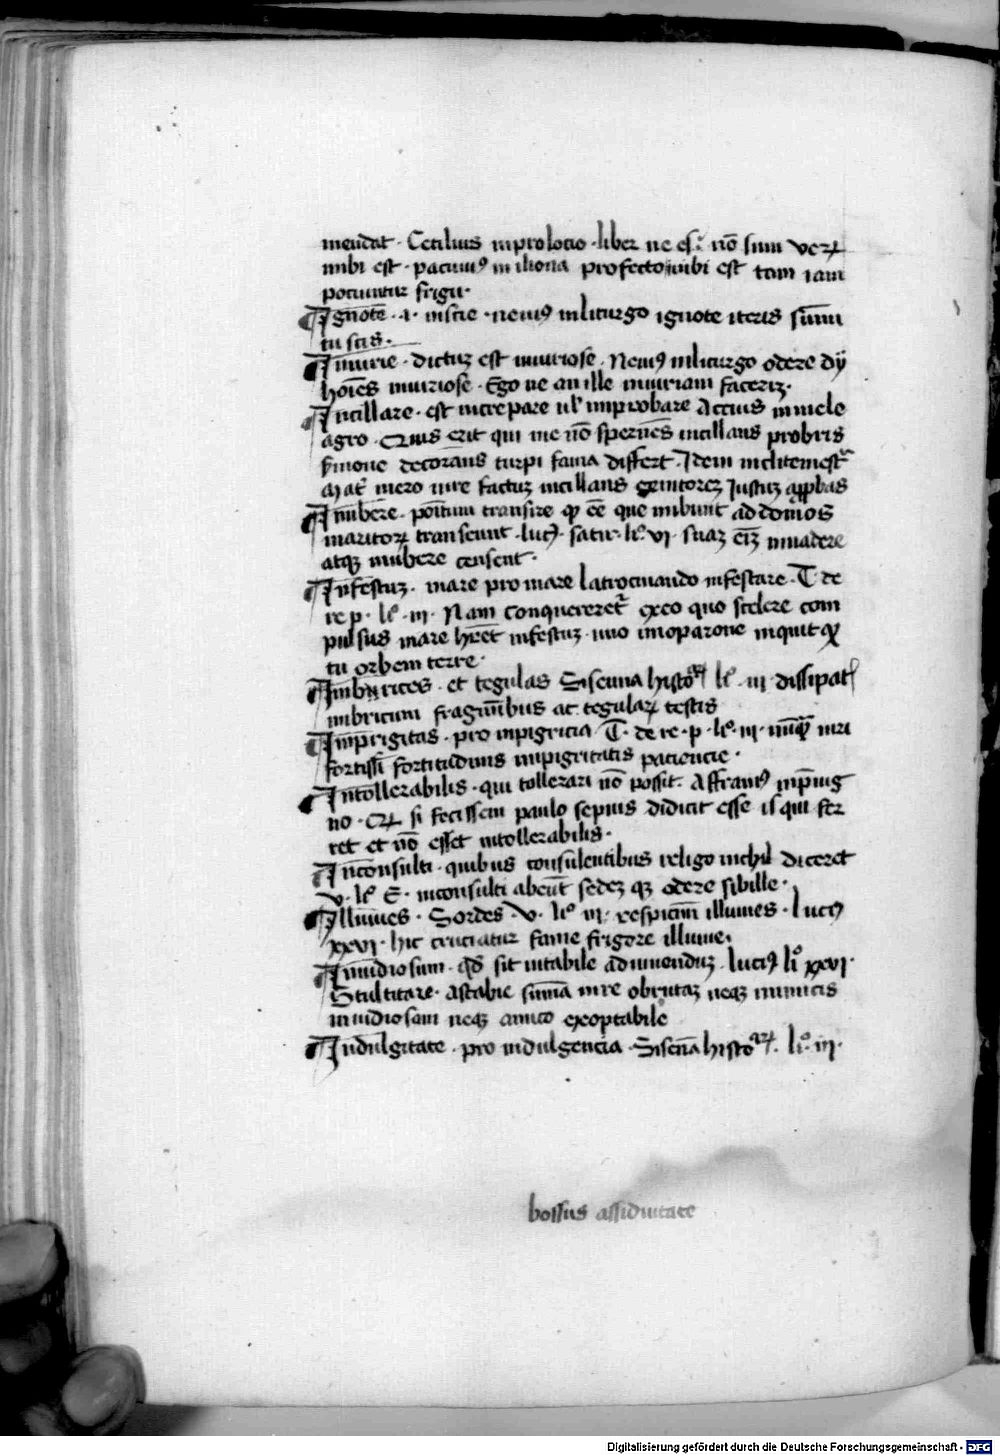 mendat · Cecilius in prolocio · liber ne es · nō sum veꝝ
mihi est · pacuuiꝰ in iliona profecto mihi est tam iam
pociuntur frigii·
Ignote · i· inscie · neuiꝰ in liturgo ignote iteris sumū
tu scis·
Iniurie · dictuꝫ est iniuriose · Neuiꝰ in liturgo odere dy
hoīes iniuriose · Ego ne an ille iniuriam faceriꝫ·
Incillare · est increpare ul' improbare Accius in mele
agro · Eius erit qui me nō spernēs incillans probris
sermone decorans turpi fama differt · Idem in clitemest
Mater mero iure factuꝫ incillans genitoreꝫ Justuꝫ approbas
Innubere · positum transire qꝫ eē que nubunt ad domos
maritoꝝ transeunt · luciꝰ · satir· li° vi · suaꝫ eiꝫ inuadere
atqꝫ innubere censent ·
Infestuꝫ · mare pro mare latrocinando infestare · T de
re p · li° · iii · Nam conquereret ex eo quo scelere com
pulsus mare hēēt infestuꝫ · uno mioparone inquit
tu orbem terre ·
Imbrices · et tegulas Sisenna histoꝝ li° · iii · dissipat
imbricum fragminibus ac tegulaꝝ testis
Impigritas · pro inpigricia T · de re · p · li° · iii · uiri
fortissi fortitudinis impigritatis paciencie ·
Intollerabilis · qui tollerari nō possit · Affraniꝰ in
no · si fecissem paulo sepius didicit esse is qui fer
ret et nō esset intollerabilis ·
Inconsulti · quibus consulentibus religo nichil diceret
v · li° E · inconsulti abeūt sedeꝫ qꝫ odere sibille ·
Illuuies · Sordes · v · li° iii · respiciūt illuuies · luciꝰ
xxvi · hic cruciatur fame frigore illuuie ·
Inuidiosum · qd sit inuitabile ad inuidenduꝫ · luciꝰ li° xxvi ·
Stultitare · astabile summa in re obrutaꝫ neqꝫ inimicis
inuidiosam neqꝫ amico exoptabile
Indulgitate · pro indulgencia · Sisenna histoꝝ · li° · iii ·
bossus assiduitate
Digitalisierung gefördert durch die Deutsche Forschungsgemeinschaft - DFG